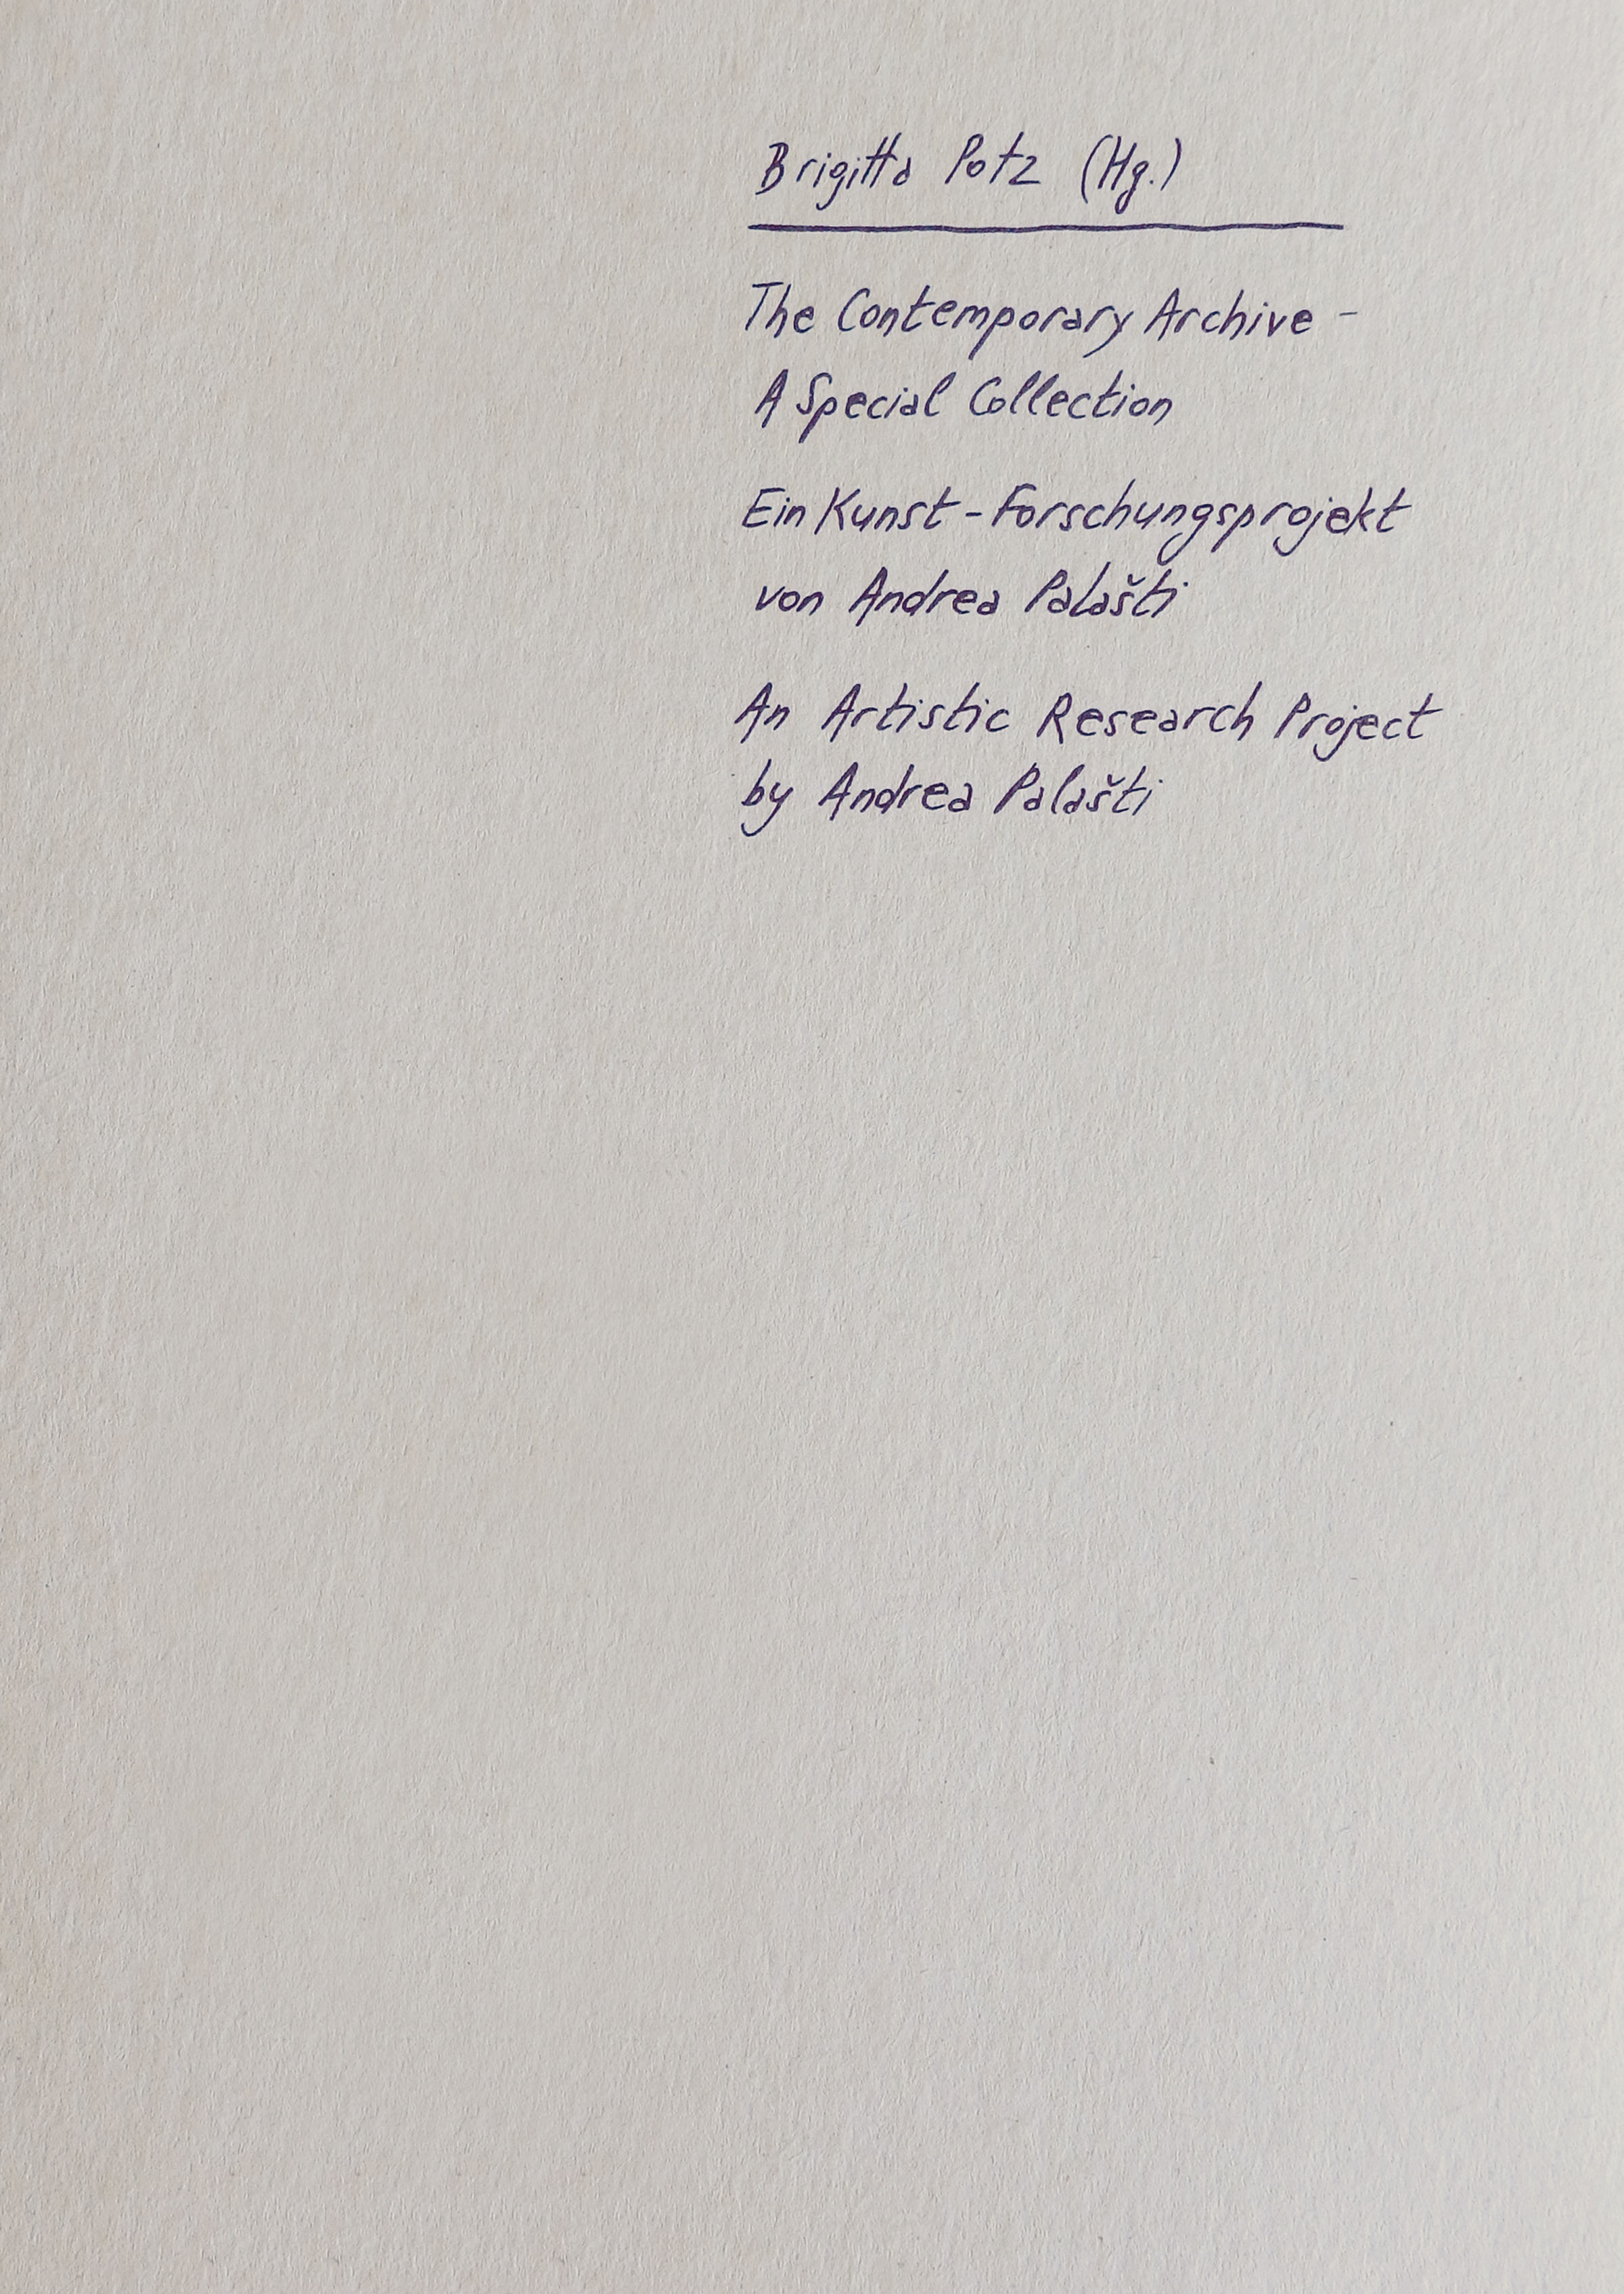 Brigitta Potz (Hg.)
The Contemporary Archive -
A Special Collection
Ein Kunst-Forschungsprojekt
von Andrea Palašti
An Artistic Research Project
by Andrea Palašti